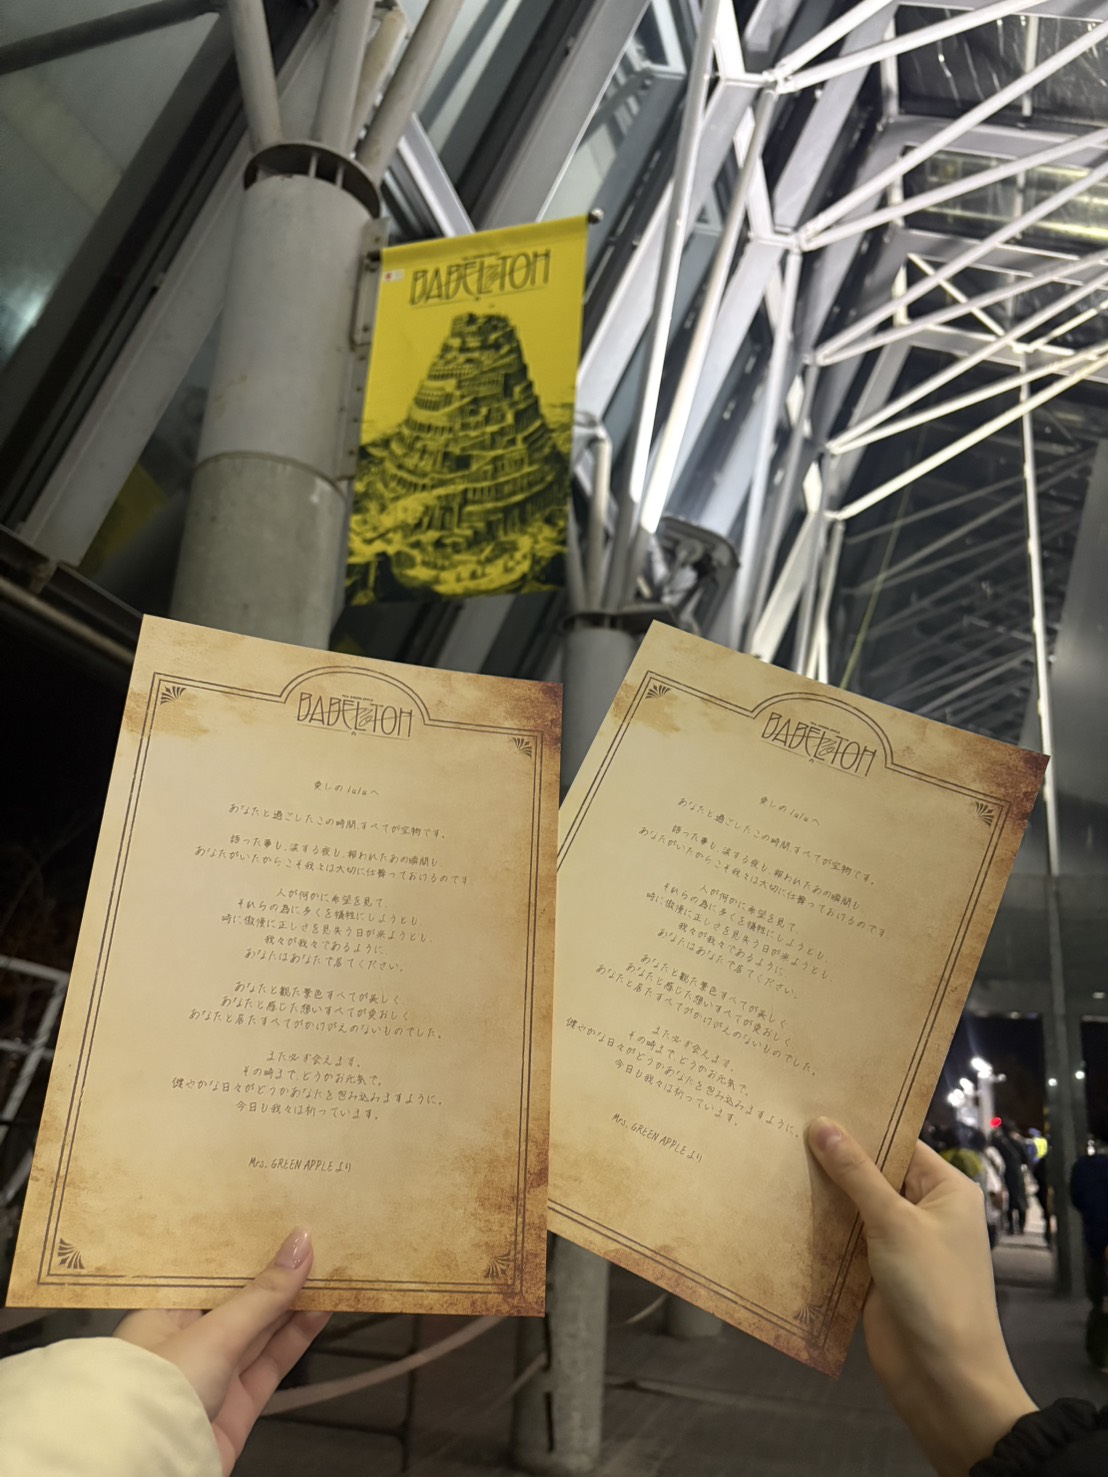 BABEL no TOH
BABEL no TOH
愛しの lulu へ
あなたと過ごしたこの時間、すべてが宝物です。
語った事も、涙する夜も、報われたあの瞬間も、
あなたがいたからこそ我々は大切に仕舞っておけるのです。
人が何かに希望を見て、
それらの為に多くを犠牲にしようとも、
時に傲慢に正しさを見失う日が来ようとも、
我々が我々であるように、
あなたはあなたで居てください。
あなたと観た景色すべてが美しく、
あなたと感じた想いすべてが愛おしく、
あなたと居たすべてがかけがえのないものでした。
また必ず会えます。
その時まで、どうかお元気で。
健やかな日々がどうかあなたを包み込みますように。
今日も我々は祈っています。
Mrs. GREEN APPLEより
BABEL no TOH
愛しの lulu へ
あなたと過ごしたこの時間、すべてが宝物です。
語った事も、涙する夜も、報われたあの瞬間も、
あなたがいたからこそ我々は大切に仕舞っておけるのです
人が何かに希望を見て、
それらの為に多くを犠牲にしようとも、
時に傲慢に正しさを見失う日が来ようとも、
我々が我々であるように、
あなたはあなたで居てください。
あなたと観た景色すべてが美しく、
あなたと感じた想いすべてが愛おしく、
あなたと居たすべてがかけがえのないものでした。
また必ず会えます。
その時まで、どうかお元気で。
健やかな日々がどうかあなたを包み込みますように。
今日も我々は祈っています。
Mrs. GREEN APPLEより